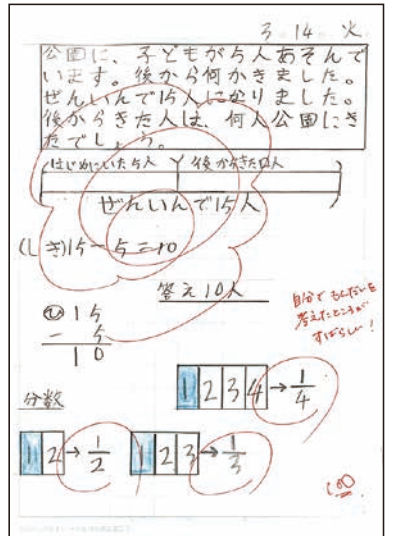 3.14.火
公園に、子どもが5人あそんで
います。後から何かきました。
ぜんいんで15人になりました。
後からきた人は、何人公園にき
たでしょう。
はじめにいた5人 後からきた□人
ぜんいんで15人
(しき)15-5=10
答え10人
ひ 15
- 5
10
自分でもんだいを
考えたところが
すばらしい!
1 2 3 4 → 1/4
分数
1 2 → 1/2 1 2 3 → 1/3
100